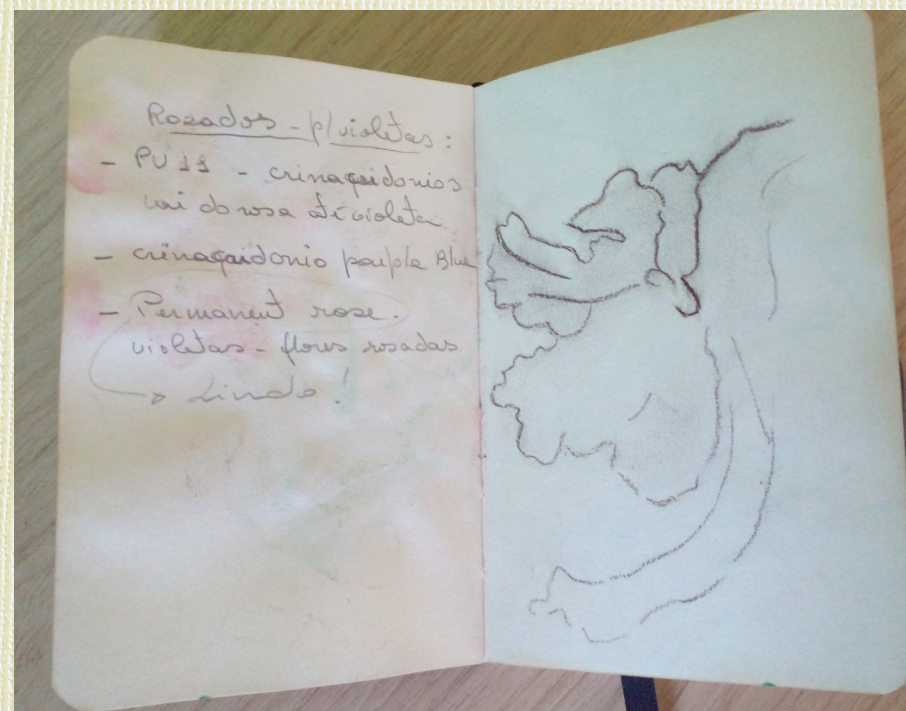 Rosados - p/violetas:
- PU 11 - crinaquidonios
vai do rosa até violeta
- crinaquidonio purple Blue
- Permanent rose.
violetas - flores rosadas
→ Lindo!